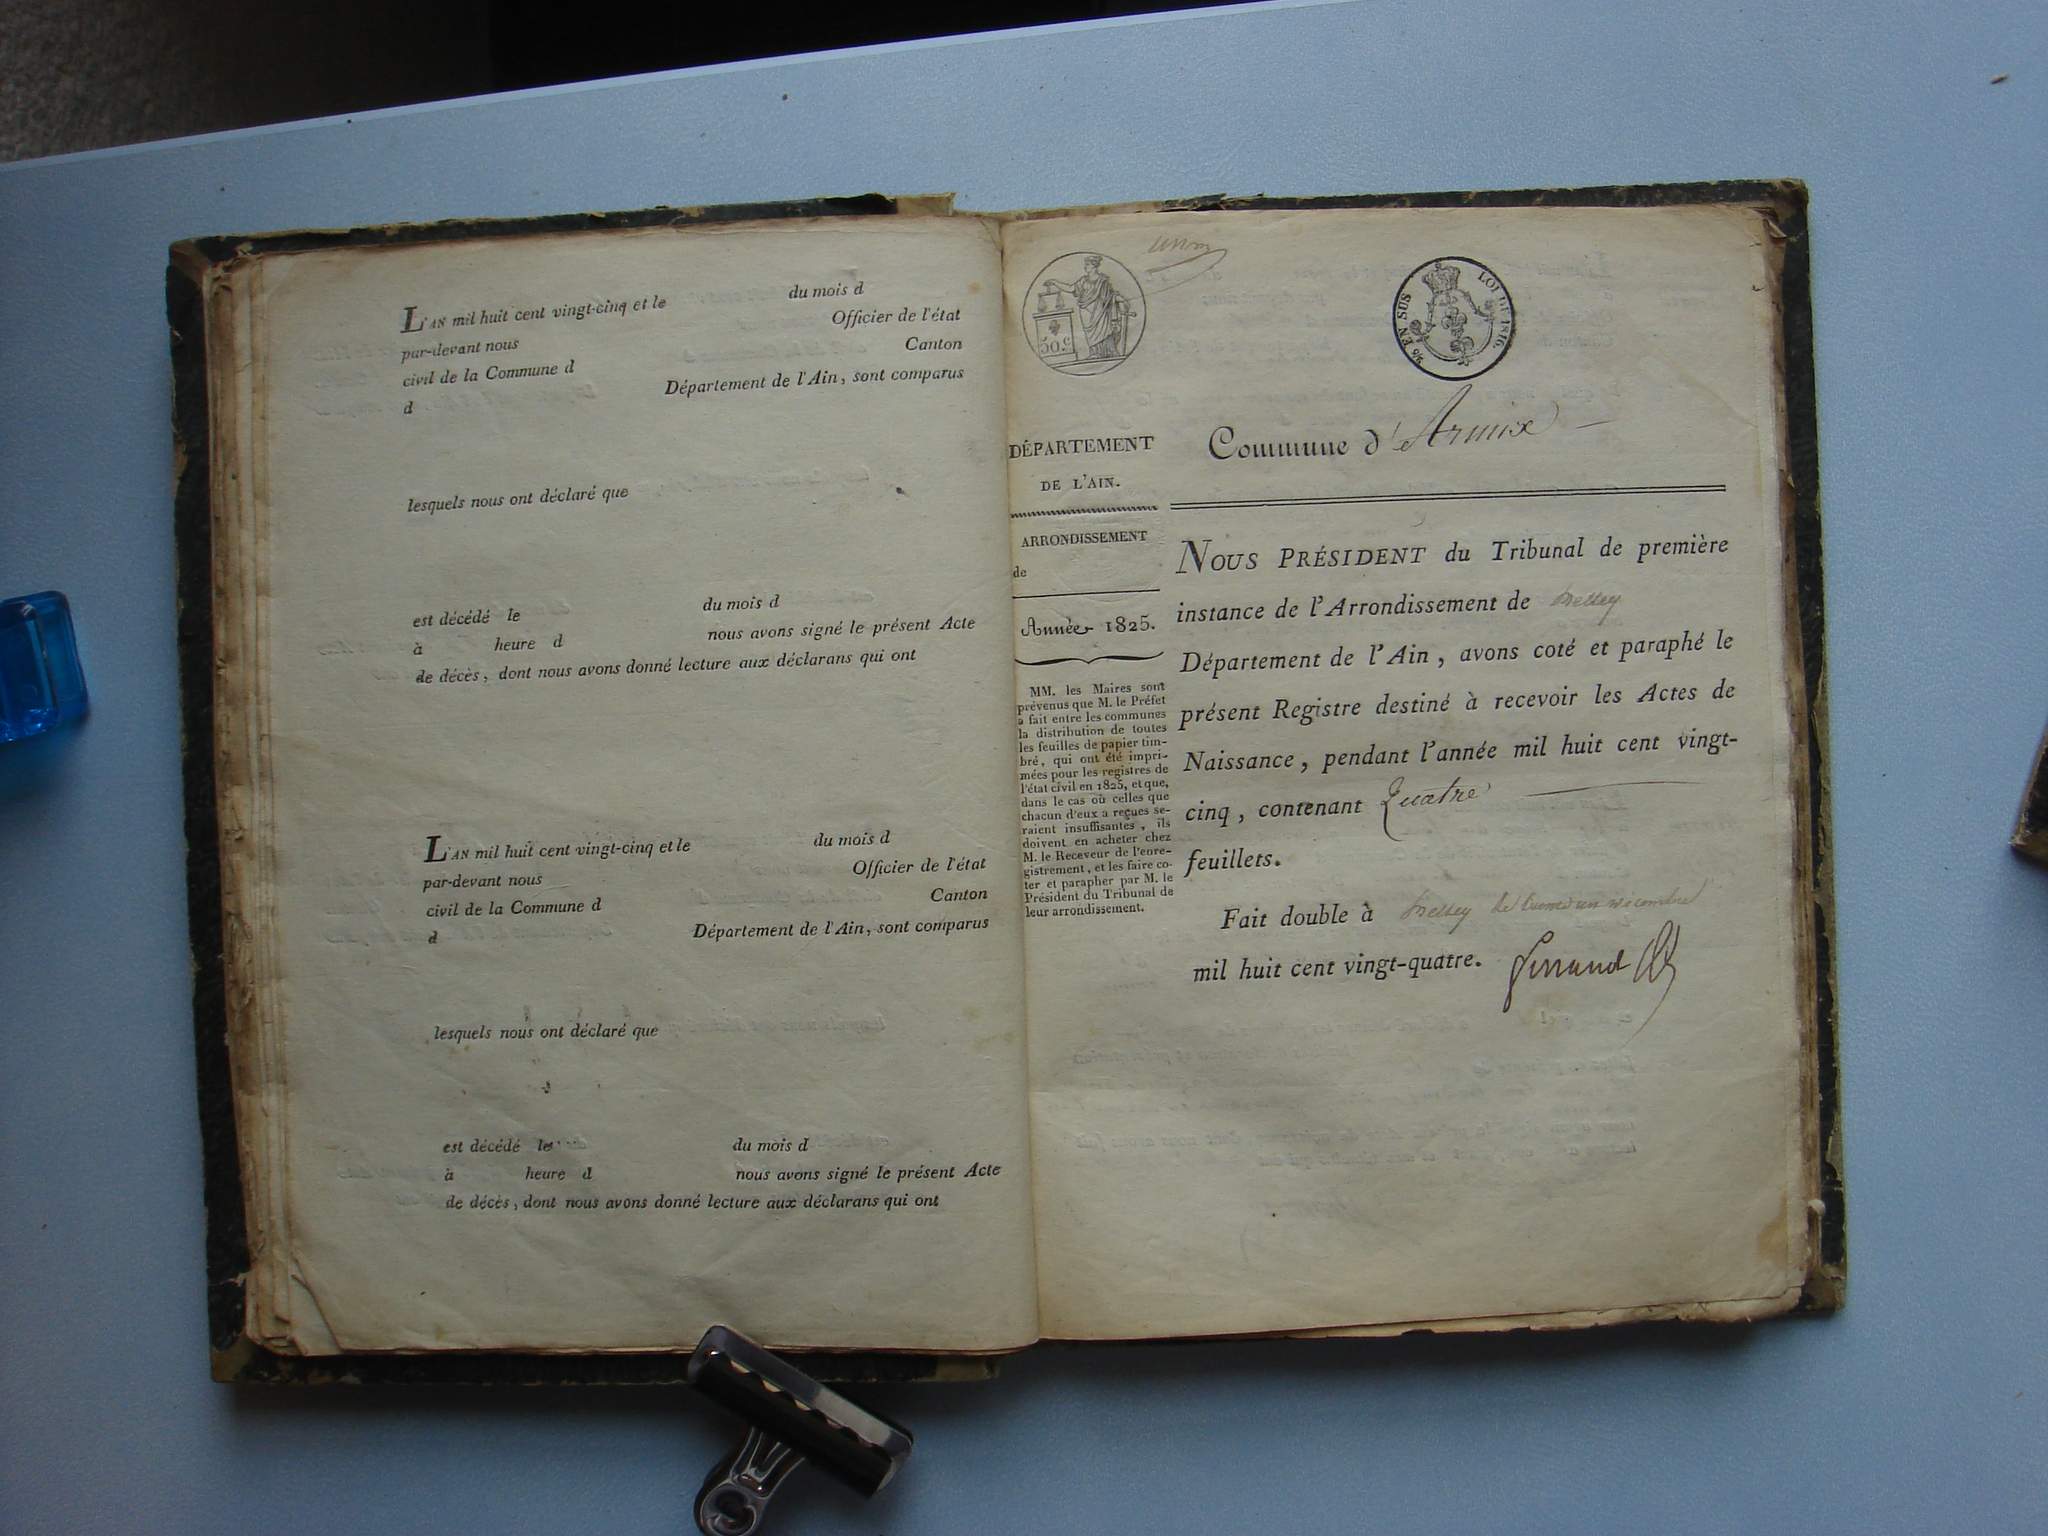 L'AN mil huit cent vingt-cinq et le du mois d
par-devant nous Officier de l'état
civil de la Commune d Canton
d Département de l'Ain, sont comparus
lesquels nous ont déclaré que
est décédé le du mois d
à heure d nous avons signé le présent Acte
de décès, dont nous avons donné lecture aux déclarans qui ont
L'AN mil huit cent vingt-cinq et le du mois d
par-devant nous Officier de l'état
civil de la Commune d Canton
d Département de l'Ain, sont comparus
lesquels nous ont déclaré que
est décédé le du mois d
à heure d nous avons signé le présent Acte
de décès, dont nous avons donné lecture aux déclarans qui ont
50.c
EN SUS LOI DE 1816.
DÉPARTEMENT
DE L'AIN.
ARRONDISSEMENT
de
Année 1825.
MM. les Maires sont
prévenus que M. le Préfet
a fait entre les communes
la distribution de toutes
les feuilles de papier tim-
bré, qui ont été impri-
mées pour les registres de
l'état civil en 1825, et que,
dans le cas où celles que
chacun d'eux a reçues se-
raient insuffisantes, ils
doivent en acheter chez
M. le Receveur de l'enre-
gistrement, et les faire co-
ter et parapher par M. le
Président du Tribunal de
leur arrondissement.
Commune d'Armix
NOUS PRÉSIDENT du Tribunal de première
instance de l'Arrondissement de Belley
Département de l'Ain, avons coté et paraphé le
présent Registre destiné à recevoir les Actes de
Naissance, pendant l'année mil huit cent vingt-
cinq, contenant Quatre
feuillets.
Fait double à Belley le
mil huit cent vingt-quatre.